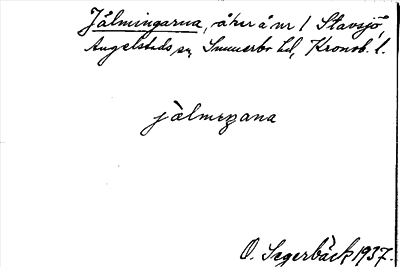 Jälmingarna, åker å nr 1 Stavsjö,
Angelstads sn, Sunnerbo hd, Kronob. l.
jàlmeŋana
O. Segerbäck 1937.